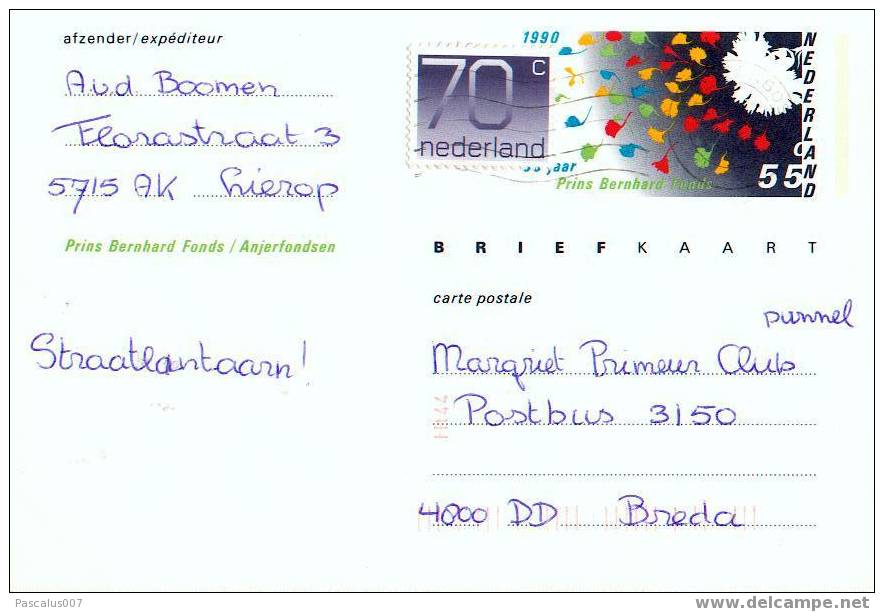 afzender/expéditeur
A.v.d Boomen
Florastraat 3
5715 AK Lierop
Prins Bernhard Fonds / Anjerfondsen
Straatlantaarn!
1990
70 c
nederland
jaar
Prins Bernhard Fonds
55 c
NEDERLAND
BRIEFKAART
carte postale
punnel
Margriet Primeur Club
Postbus 3150
4800 DD Breda
Pascalus007
www.delcampe.net